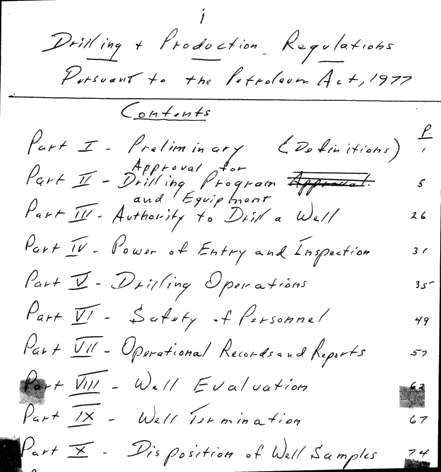 i
Drilling + Production Regulations
Pursuant to the Petroleum Act, 1977
Contents
P.
Part I - Preliminary (Definitions) 1
Approval for
Part II - Drilling Program Approval 5
and Equipment
Part III - Authority to Drill a Well 26
Part IV - Power of Entry and Inspection 31
Part V - Drilling Operations 35
Part VI - Safety of Personnel 49
Part VII - Operational Records and Reports 57
Part VIII - Well Evaluation 63
Part IX - Well Termination 67
Part X - Disposition of Well Samples 74